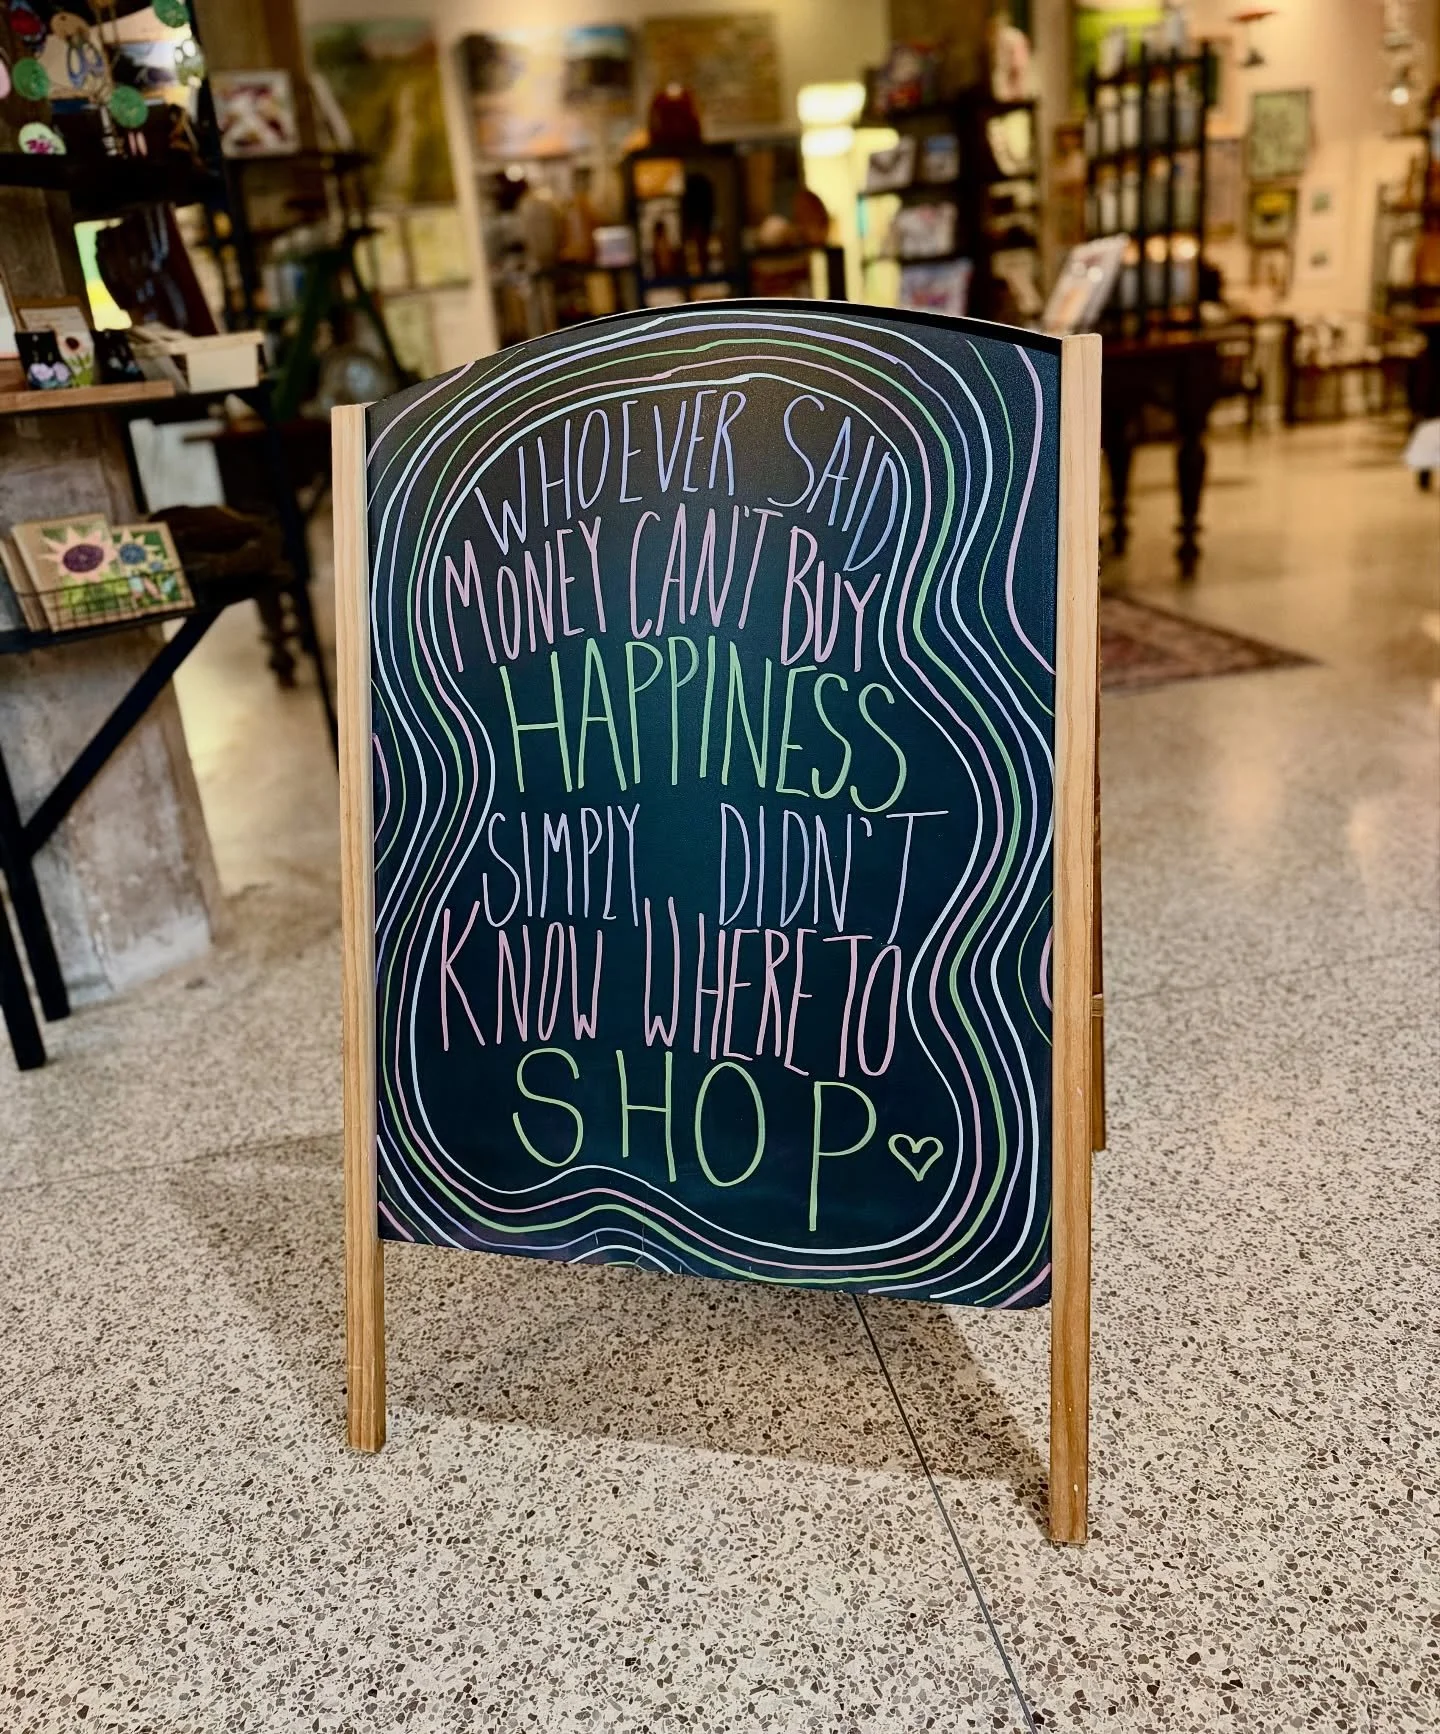 WHOEVER SAID
MONEY CAN'T BUY
HAPPINESS
SIMPLY DIDN'T
KNOW WHERE TO
SHOP ♡